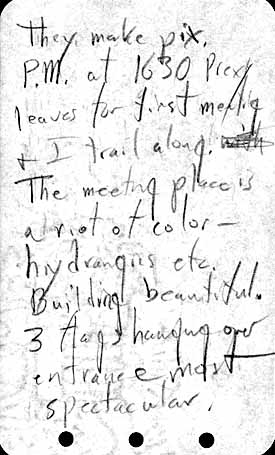 They make pix.
P.M. at 1630 Prexy
leaves for first meeting
& I trail along.
The meeting place is
a riot of color—
hydrangias etc.
Building beautiful.
3 flags hanging over
entrance most
spectacular.